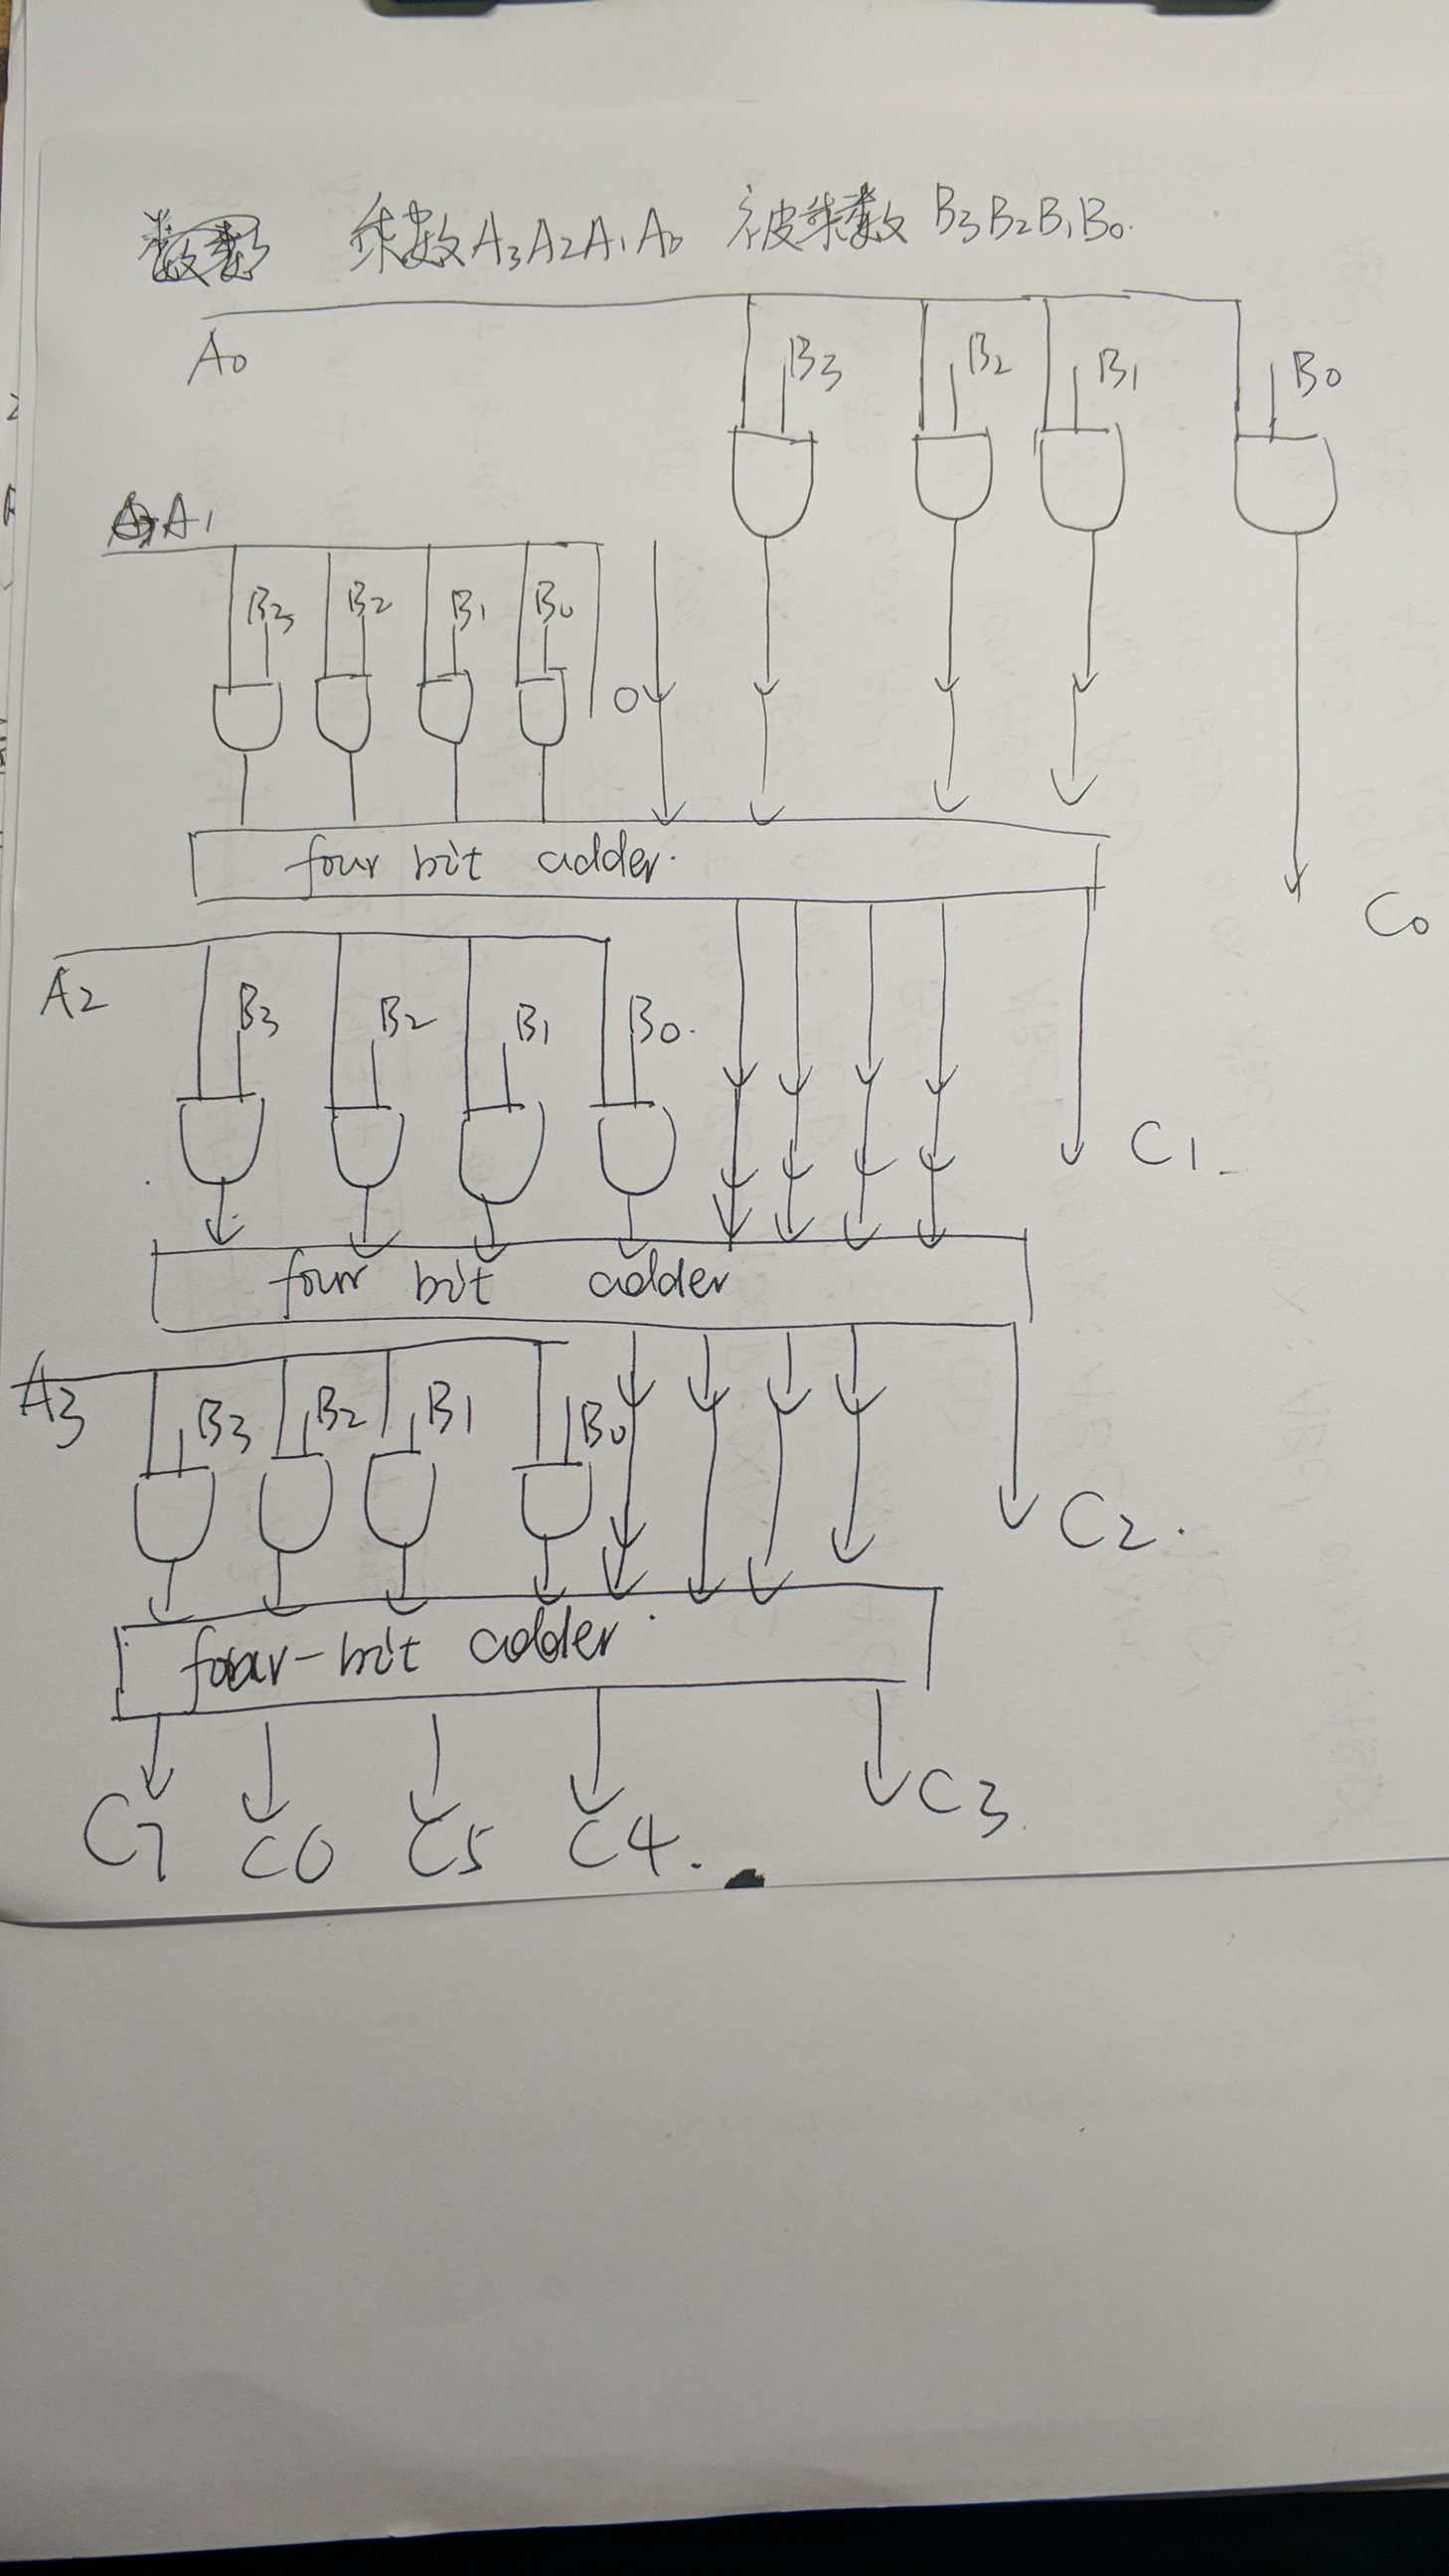 乘数A3A2A1A0 被乘数 B3B2B1B0.
A0 B3 B2 B1 B0
A1
B3 B2 B1 B0 0
four bit adder.
C0
A2 B3 B2 B1 B0.
C1
four bit adder
A3 B3 B2 B1 B0
C2.
four-bit adder.
C7 C6 C5 C4. C3